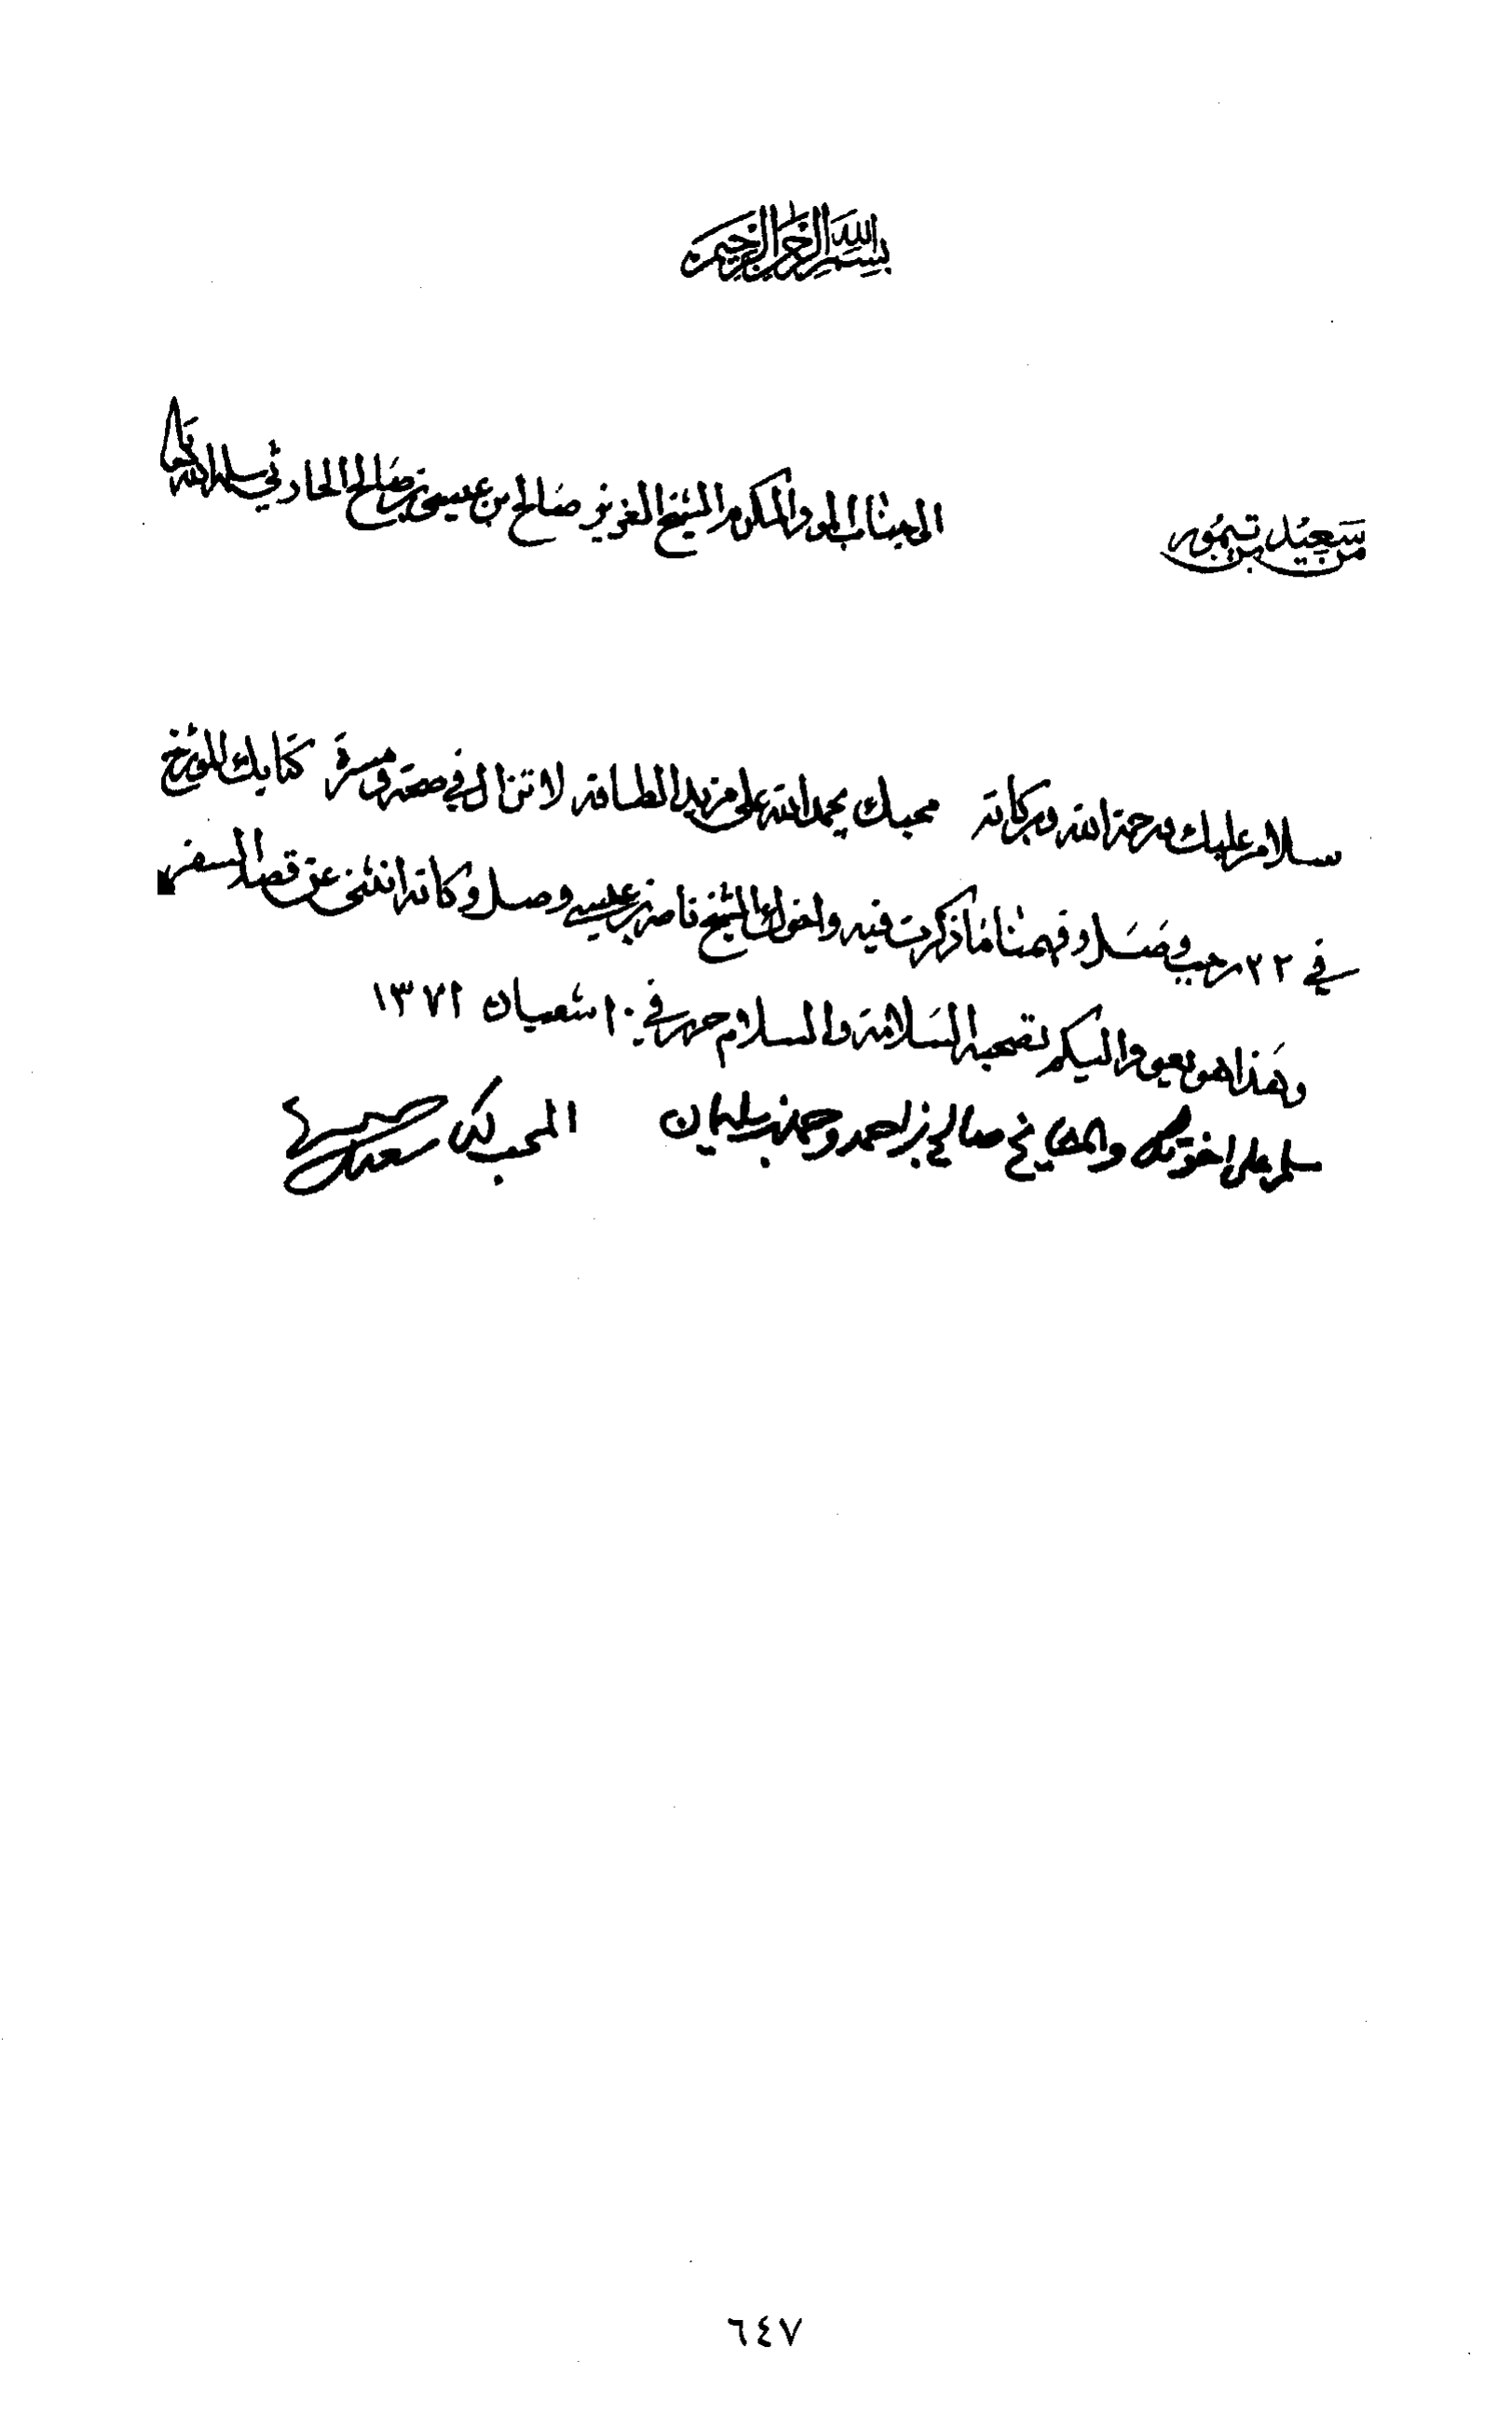 بسم الله الرحمن الرحيم
من سعيد بن تيمور
الى جناب المود المكرم الشيخ العزيز صالح بن عيسى بن صالح الحارثي سلمه الله تعالى
سلام عليك ورحمة الله وبركاته محبك بحمد الله على مزيد الطافه لا تزال في صحة ومسرة كتابك المؤرخ
في ٢٢ رجب وصل وفهمنا ما ذكرت فيه واخوك الشيخ ناصر بن عيسى وصل وكانه انثنى عن قصد السفر
وهذا هو يعود اليكم تصحبه السلامة والسلام حرر في ١٠ شعبان ١٣٧٢
سلم على اخوتك والمشايخ صالح بن احمد وحمد بن سليمان المحب لك سعيد
٦٤٧